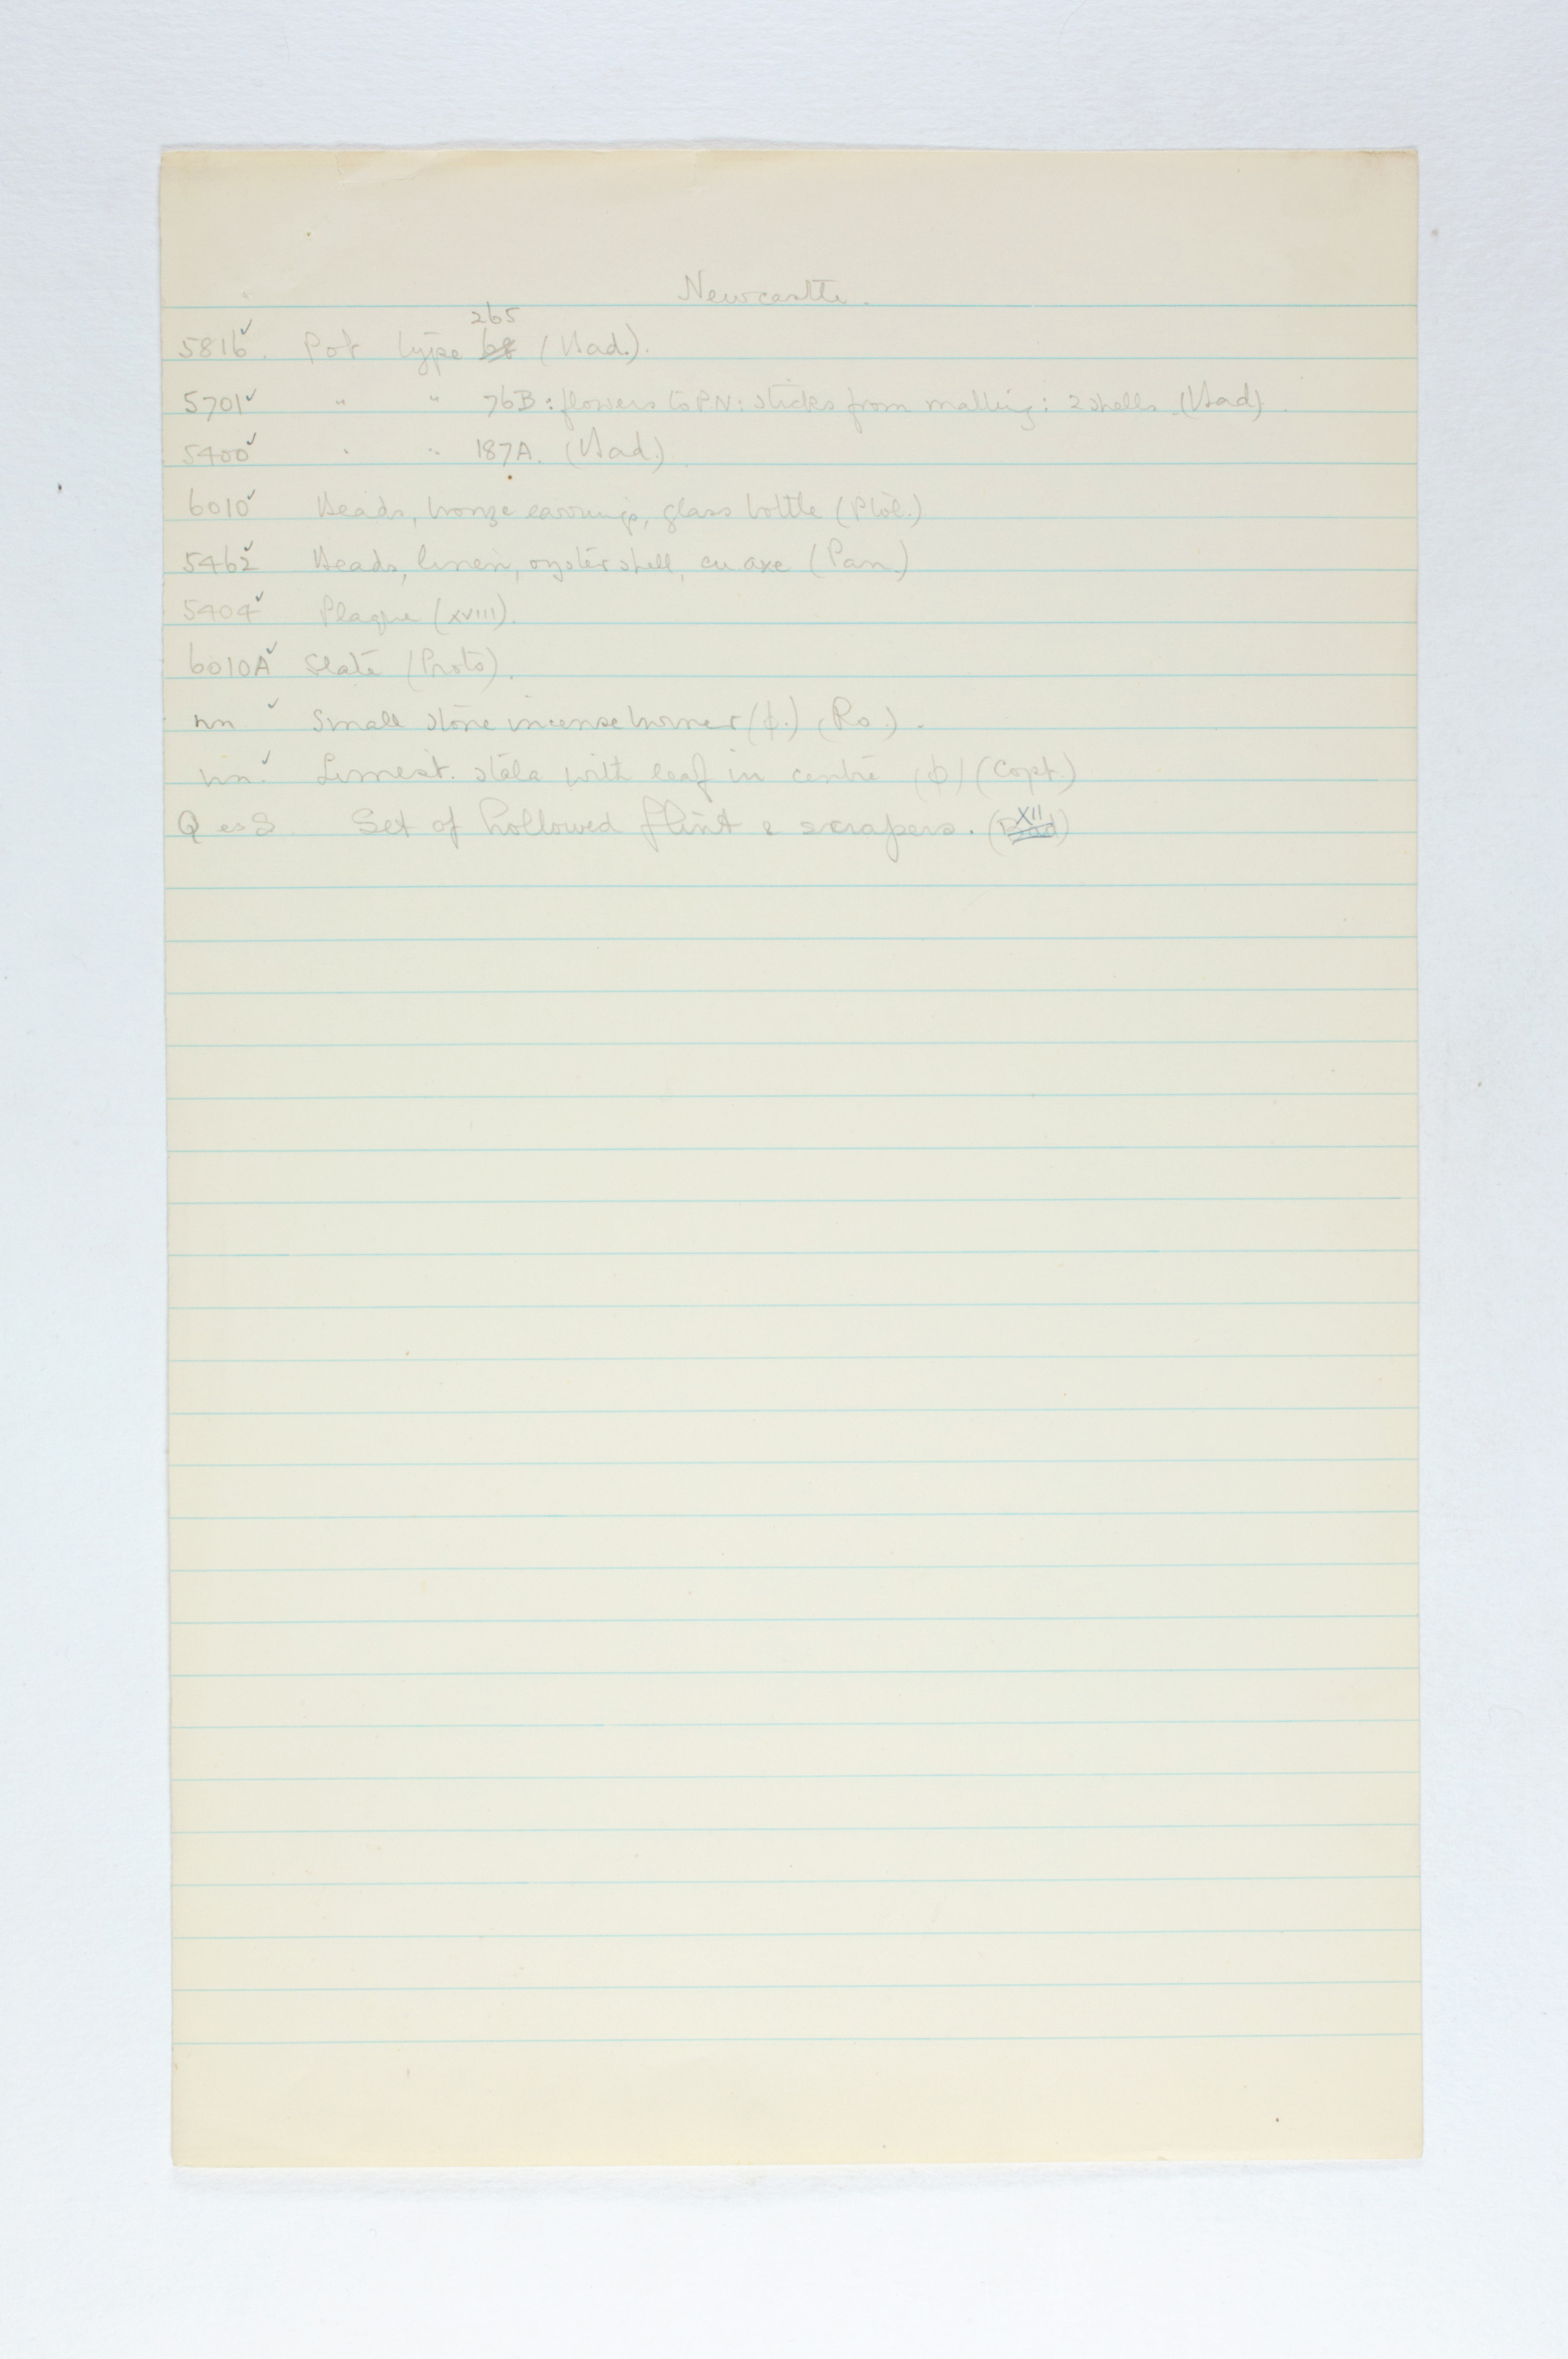 Newcastle.
5816 ✓. Pot type 265 (Bad.).
5701 ✓ " " 76B: flowers to PN: sticks from matting: 2 shells (Bad).
5400 ✓ " " 187A. (Bad.)
6010 ✓ Beads, bronze earrings, glass bottle (Ptol.)
5462 ✓ Beads, linen, oyster shell, cu axe (Pan.)
5404 ✓ Plaque (XVIII).
6010A ✓ Slate (Proto).
nn ✓ Small stone incense burner (ϕ.) (Ro.).
nn. ✓ Limest. stela with leaf in centre (ϕ) (Copt.)
Q Set of hollowed flint & scrapers. (XII)